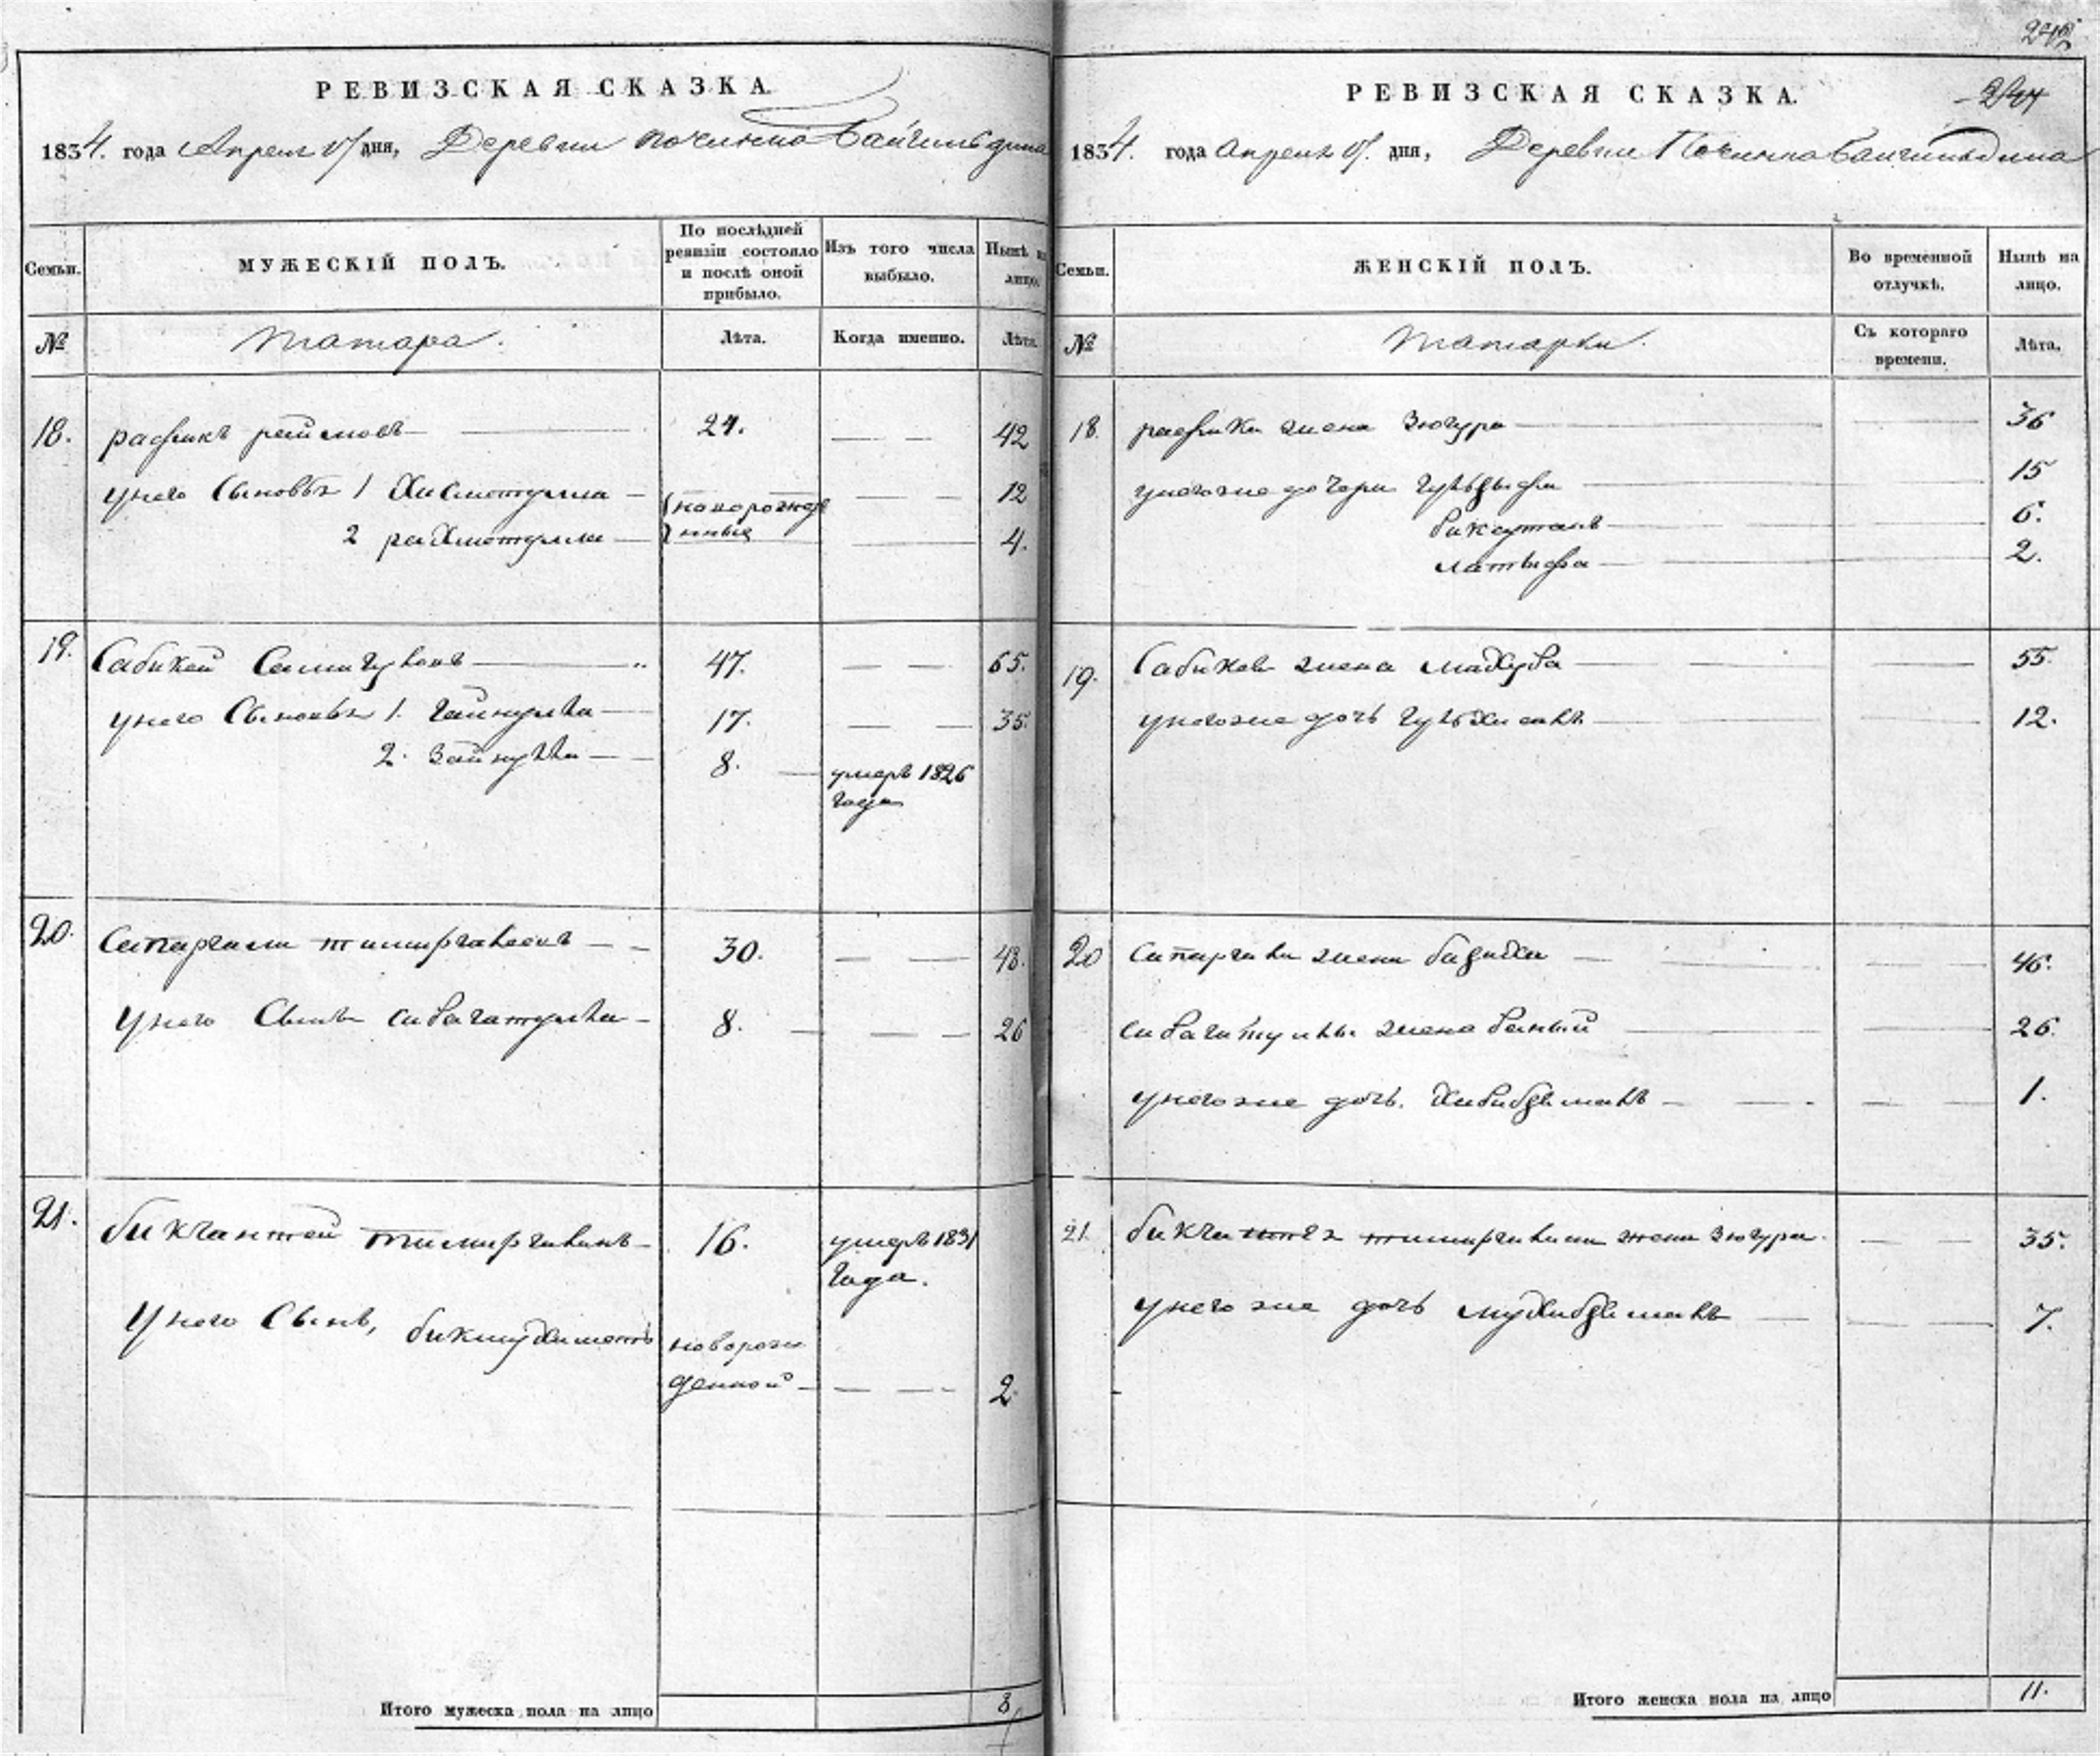 РЕВИЗСКАЯ СКАЗКА
1834. года Апреля дня, Деревни починка Байгильдина
Семьи.
МУЖЕСКІЙ ПОЛЪ.
По послѣдней
ревизіи состояло
и послѣ оной
прибыло.
Изъ того числа
выбыло.
Нынѣ на
лицо.
№
татара.
Лѣта.
Когда именно.
Лѣта.
18. рафикъ раимовъ 24. 42
у него Сыновья 1 Хисметулла 12
2 рахметулла 4.
новорожде
нные
19. Сабикей 47. 65.
у него Сыновья 1. Гайнулла 17. 35.
2. Зайнулла 8. умеръ 1826
года
20. Сатаргали тимиргалеевъ 30. 48.
у него Сынъ сивагатулла 8. 26
21. бикчантей тимиргалинъ 16. умеръ 1831
года.
у него Сынъ, бикмухаметъ новорож
денной 2
Итого мужеска пола на лицо 8
РЕВИЗСКАЯ СКАЗКА.
1834. года апреля дня, Деревни Починка Байгильдина
Семьи.
ЖЕНСКІЙ ПОЛЪ.
Во временной
отлучкѣ.
Нынѣ на
лицо.
№
татарки.
Съ котораго
времени.
Лѣта.
18. рафика жена Зюгура 36
у него же дочери 15
6.
латыфа 2.
19. Сабикея жена махуба 55.
у него же дочь 12.
20 сатаргали жена бадиха 46.
сивагатуллы жена 26.
у него же дочь. хабибзямалъ 1.
21. бикчантея тимиргалина жена зюгура. 35.
у него же дочь мухибзямалъ 7.
Итого женска пола на лицо 11.